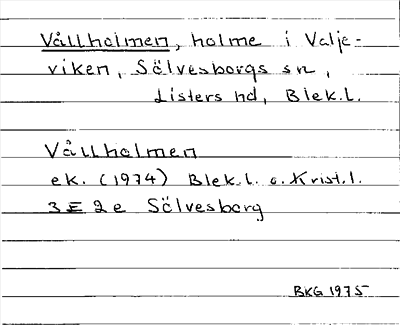 Vållholmen, holme i Valje-
viken, Sölvesborgs sn,
Listers hd, Blek.l.
Vållholmen
ek. (1974) Blek.l. o. Krist.l.
3 E 2 e Sölvesborg
BKG 1975